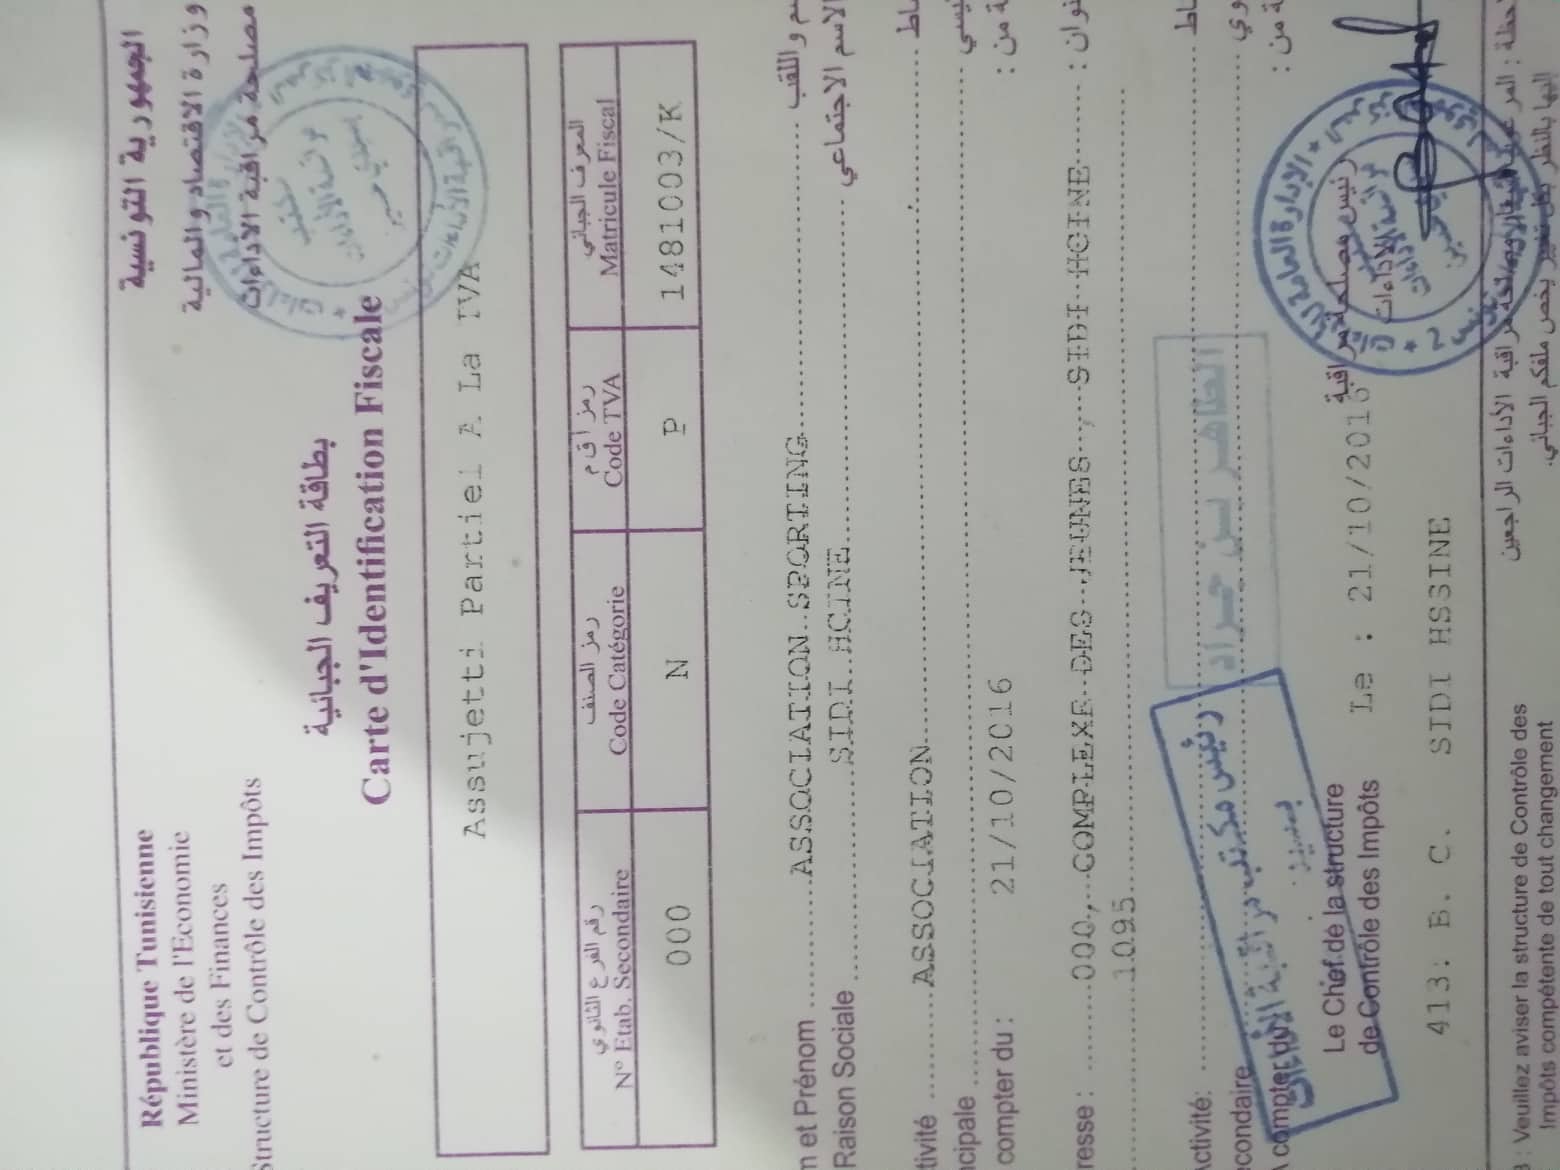 République Tunisienne
الجمهورية التونسية
Ministère de l'Economie
et des Finances
وزارة الاقتصاد والمالية
Structure de Contrôle des Impôts
مصلحة مراقبة الاداءات
بطاقة التعريف الجبائية
Carte d'Identification Fiscale
Assujetti Partiel A La TVA
رقم الفرع الثانوي
رمز الصنف
رمز ا ق م
المعرف الجبائي
N° Etab. Secondaire
Code Catégorie
Code TVA
Matricule Fiscal
000
N
P
1481003/K
m et Prénom ASSOCIATION SPORTING م واللقب
Raison Sociale SIDI HCINE الاسم الاجتماعي
tivité ASSOCIATION ـاط
ncipale يسي
compter du : 21/10/2016 ة من :
resse : 000, COMPLEXE DES JEUNES , SIDI HCINE نوان :
1095
ctivité: ـاط
condaire وي
A compter du ة من :
الطاهر بن جراد
رئيس مكتب مراقبة الأداءات
Le Chef de la structure
de Contrôle des Impôts
Le : 21/10/2016
رئيس مصلحة مراقبة
الاداءات
413: B. C. SIDI HSSINE
: Veuillez aviser la structure de Contrôle des
Impôts compétente de tout changement
مراقبة الأداءات الراجعين
إليها بالنظر بكل تغيير يخص ملفكم الجبائي.